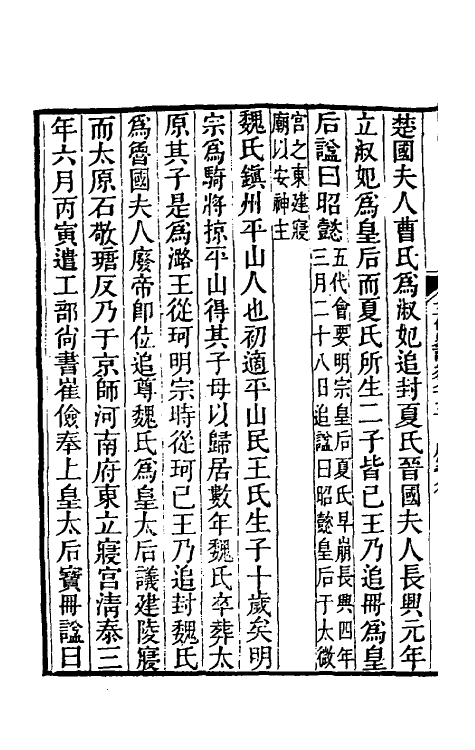 楚國夫人曹氏爲淑妃追封夏氏晉國夫人長興元年
立淑妃爲皇后而夏氏所生二子皆已王乃追冊爲皇
后諡曰昭懿
五代會要明宗皇后夏氏早崩長興四年
三月二十八日追諡曰昭懿皇后于太微
宫之東建寢
廟以安神主
魏氏鎭州平山人也初適平山民王氏生子十歲矣明
宗爲騎將掠平山得其子母以歸居數年魏氏卒葬太
原其子是爲潞王從珂明宗時從珂已王乃追封魏氏
爲魯國夫人廢帝卽位追尊魏氏爲皇太后議建陵寢
而太原石敬瑭反乃于京師河南府東立寢宫清泰三
年六月丙寅遣工部尙書崔儉奉上皇太后寶冊諡曰